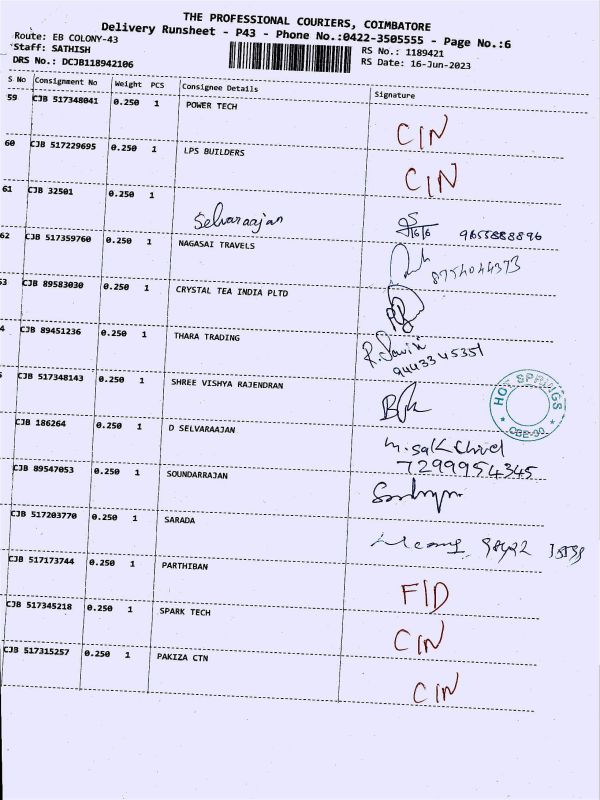 THE PROFESSIONAL COURIERS, COIMBATORE
Delivery Runsheet - P43 - Phone No.:0422-3505555 - Page No.:6
Route: EB COLONY-43
Staff: SATHISH
DRS No.: DCJB118942106
RS No.: 1189421
RS Date: 16-Jun-2023
S No Consignment No Weight PCS Consignee Details Signature
59 CJB 517348041 0.250 1 POWER TECH CIN
60 CJB 517229695 0.250 1 LPS BUILDERS CIN
61 CJB 32501 0.250 1 Selvaraajan 16/6 9655888896
62 CJB 517359760 0.250 1 NAGASAI TRAVELS 8754044373
3 CJB 89583030 0.250 1 CRYSTAL TEA INDIA PLTD
4 CJB 89451236 0.250 1 THARA TRADING
9443345351
CJB 517348143 0.250 1 SHREE VISHYA RAJENDRAN
HOT SPRINGS
CBE-90
CJB 186264 0.250 1 D SELVARAAJAN
7299954345
CJB 89547053 0.250 1 SOUNDARRAJAN
CJB 517203770 0.250 1 SARADA
CJB 517173744 0.250 1 PARTHIBAN FID
CJB 517345218 0.250 1 SPARK TECH CIN
CJB 517315257 0.250 1 PAKIZA CTN CIN